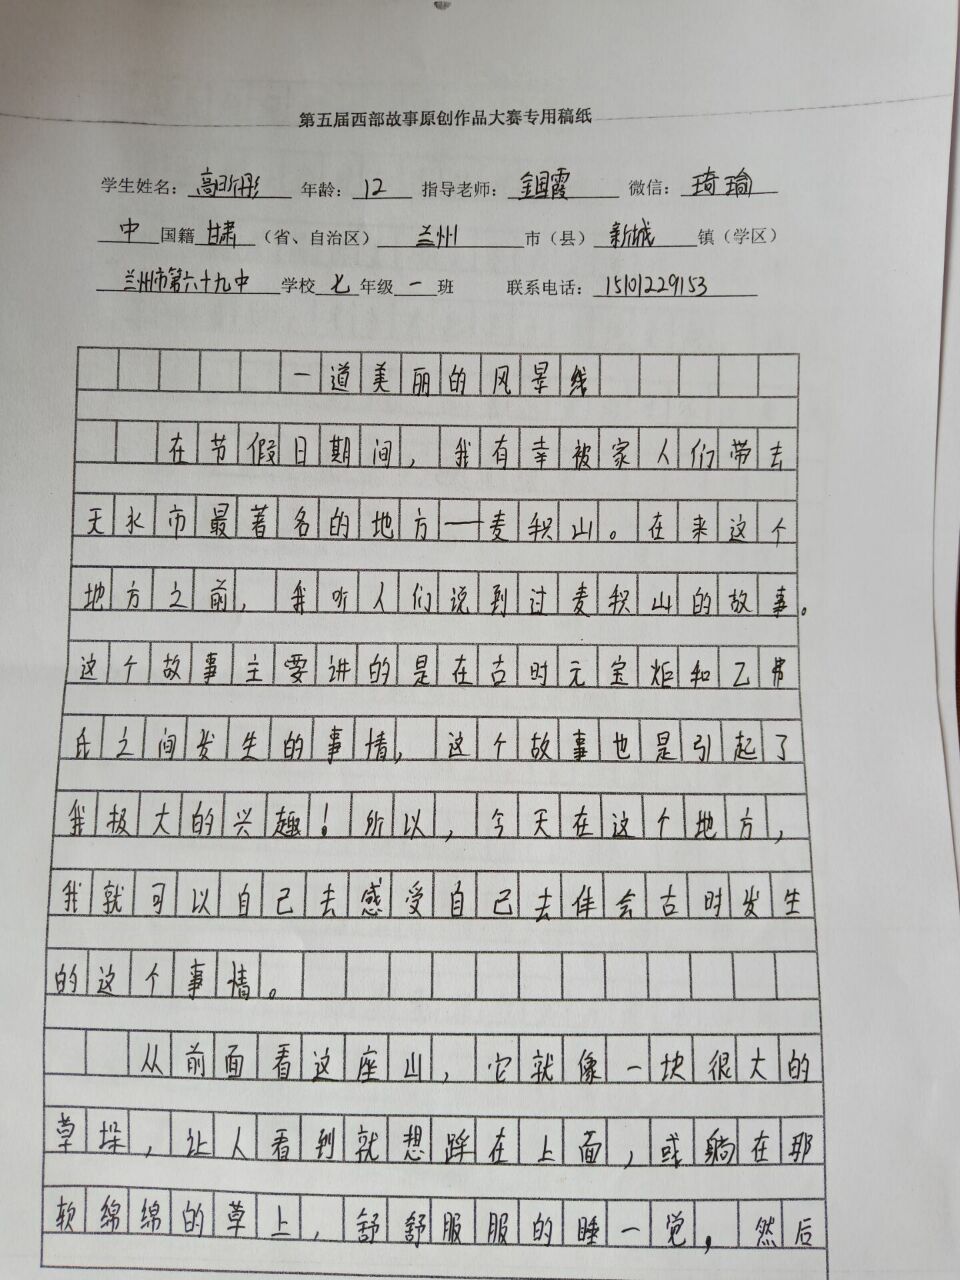 第五届西部故事原创作品大赛专用稿纸
学生姓名：高昕彤 年龄：12 指导老师：金国霞 微信：琦瑜
中国籍 甘肃（省、自治区） 兰州市（县） 新城镇（学区）
兰州市第六十九中学校 七年级 一班 联系电话：15101229153
一道美丽的风景线
在节假日期间，我有幸被家人们带去
天水市最著名的地方——麦积山。在来这个
地方之前，我听人们说到过麦积山的故事。
这个故事主要讲的是在古时元宝炬和乙弗
氏之间发生的事情，这个故事也是引起了
我极大的兴趣！所以，今天在这个地方，
我就可以自己去感受自己去体会古时发生
的这个事情。
从前面看这座山，它就像一块很大的
草垛，让人看到就想踩在上面，或躺在那
软绵绵的草上，舒舒服服的睡一觉，然后